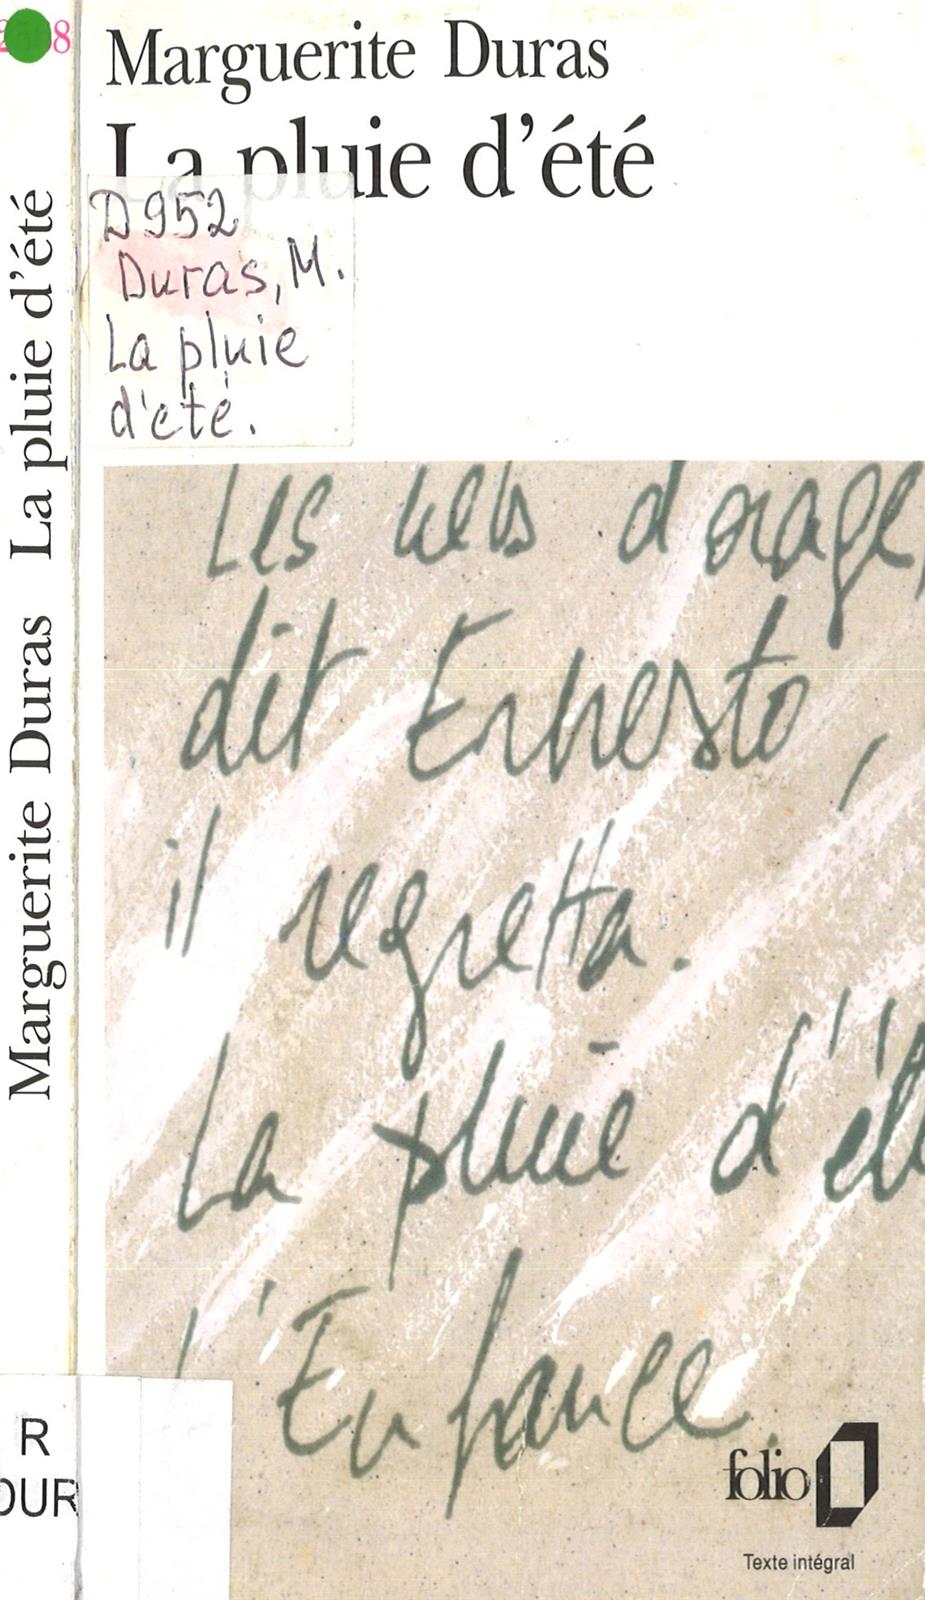 Marguerite Duras
La pluie d'été
D952
Duras, M.
La pluie
d'eté.
Marguerite Duras La pluie d'été
R
DUR
Les d'orage,
dit Ernesto,
il regretta.
La pluie d'été
l'Enfance.
folio
Texte intégral